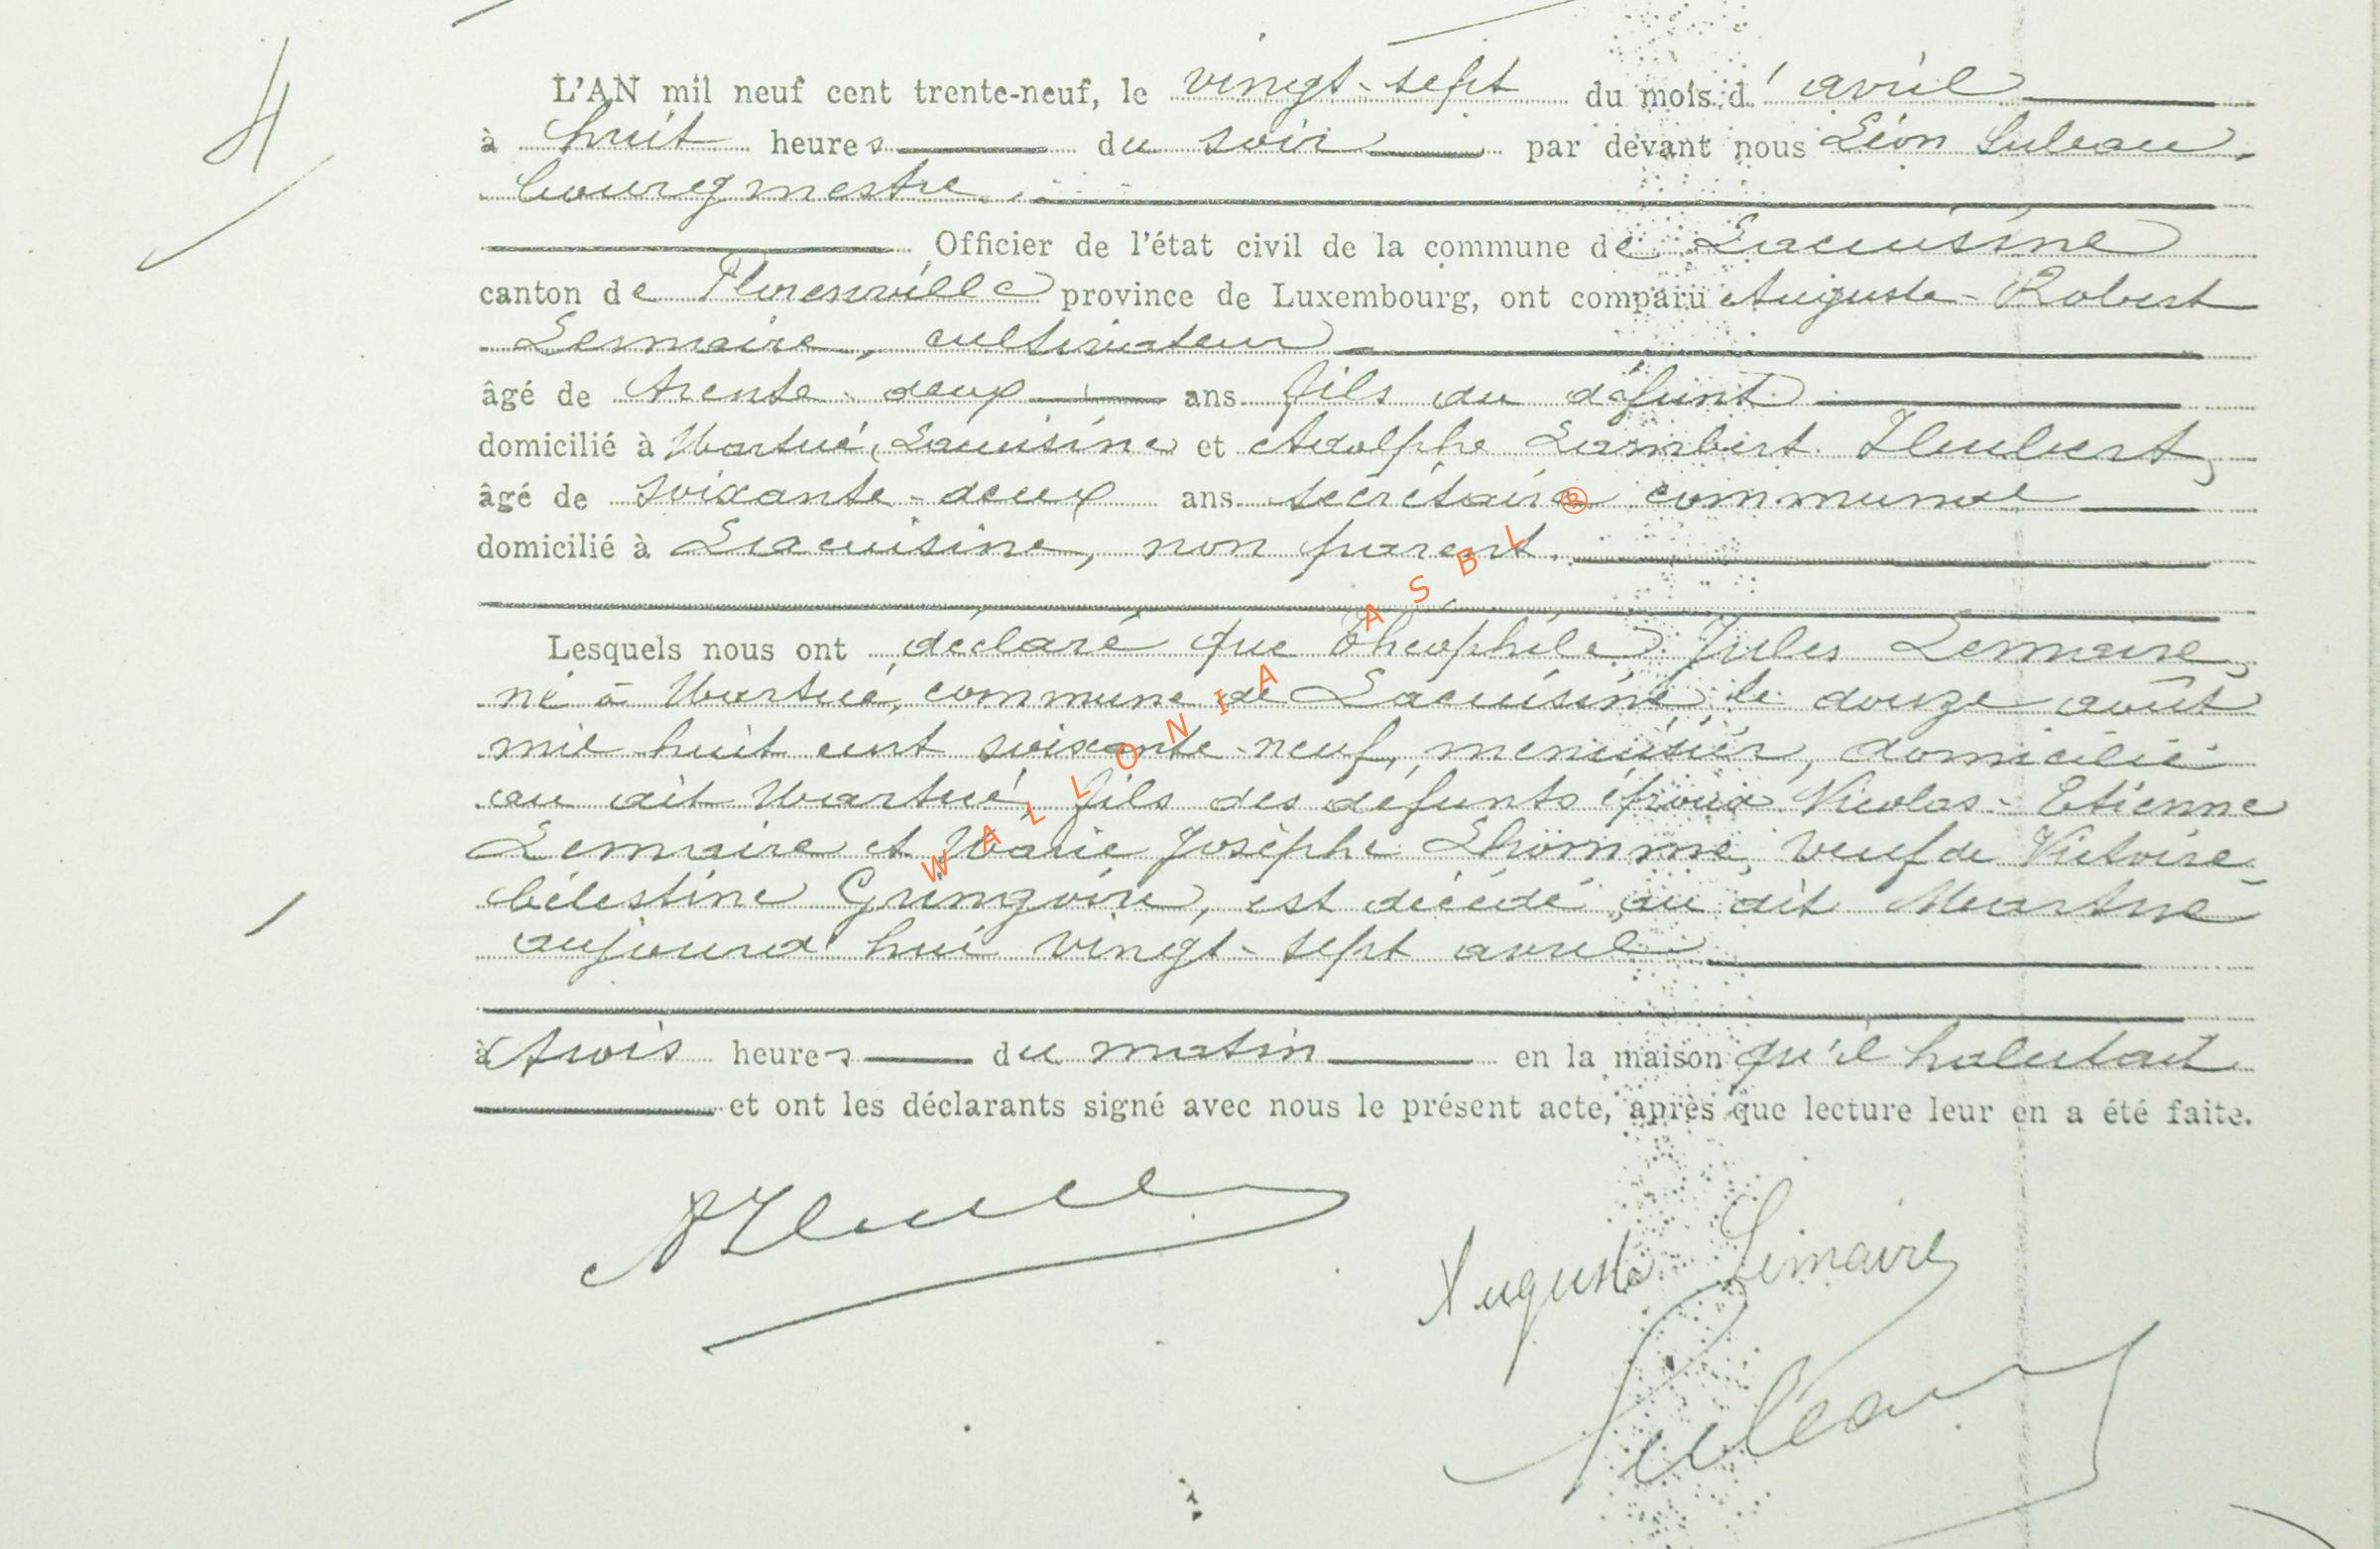 4
L'AN mil neuf cent trente-neuf, le vingt-sept du mois d'avril
à huit heures du soir par devant nous Léon Suleau,
bourgmestre
Officier de l'état civil de la commune de Lacuisine
canton de Florenville province de Luxembourg, ont comparu Auguste-Robert
Lemaire, cultivateur
âgé de trente-deux ans fils du défunt
domicilié à Martué, Lacuisine et Adolphe Lambert Hubert,
âgé de soixante-deux ans secrétaire communal
domicilié à Lacuisine, non parent.
Lesquels nous ont déclaré que Théophile Jules Lemaire,
né à Martué, commune de Lacuisine, le douze août
mil huit cent soixante-neuf, menuisier, domicilié
au dit Martué, fils des défunts époux Nicolas-Etienne
Lemaire et Marie Josèphe Lhomme, veuf de Victoire
Célestine Gringoire, est décédé au dit Martué
aujourd'hui vingt-sept avril
à trois heures du matin en la maison qu'il habitait
et ont les déclarants signé avec nous le présent acte, après que lecture leur en a été faite.
Auguste Lemaire
Suleau
WALLONIA ASBL ®